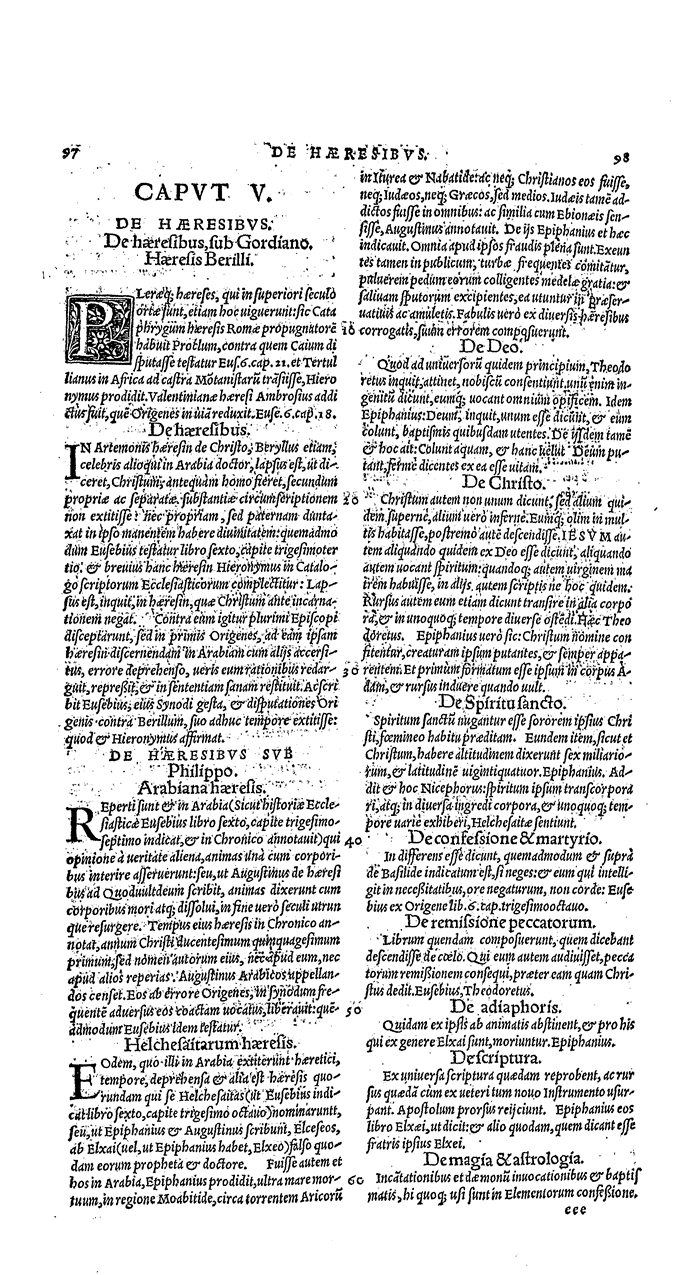 97
DE HÆRESIBVS.
98
CAPVT V.
DE HÆRESIBVS.
De hæresibus, sub Gordiano.
Hæresis Berilli.
PLeræq; hæreses, qui in superiori seculo
ortæ sunt, etiam hoc uiguerunt: sic Cata
phrygum hæresis Romæ propugnatorē
habuit Proclum, contra quem Caium di
sputasse testatur Eus. 6. cap. 21. et Tertul
lianus in Africa ad castra Mōtanistarū trāsisse, Hiero
nymus prodidit. Valentinianæ hæresi Ambrosius addi
ctus fuit, quē Origenes in uiā reduxit. Euse. 6. cap. 18.
De hæresibus.
IN Artemonis hæresin de Christo, Beryllus etiam,
celebris alioqui in Arabia doctor, lapsus est, ut di-
ceret, Christum, antequàm homo fieret, secundum
propriæ ac separatæ substantiæ circumscriptionem
non extitisse: nec propriam, sed paternam dunta-
xat in ipso manentem habere diuinitatem: quemadmo
dùm Eusebius testatur libro sexto, capite trigesimoter
tio: & breuius hanc hæresin Hieronymus in Catalo-
go scriptorum Ecclesiasticorum complectitur: Lap-
sus est, inquit, in hæresin, quæ Christum ante incarna-
tionem negat. Contra eum igitur plurimi Episcopi
disceptarunt, sed in primis Origenes, ad eam ipsam
hæresin discernendam in Arabiam cum alijs accersi-
tus, errore deprehenso, ueris eum rationibus redar-
guit, repreßit, & in sententiam sanam restituit. Ascri
bit Eusebius, eius Synodi gesta, & disputationes Ori
genis contra Berillum, suo adhuc tempore extitisse:
quod & Hieronymus affirmat.
DE HÆRESIBVS SVB
Philippo.
Arabiana hæresis.
REperti sunt & in Arabia (Sicut historiæ Eccle-
siasticæ Eusebius libro sexto, capite trigesimo-
septimo indicat, & in Chronico annotauit) qui
opinione à ueritate aliena, animas unà cum corpori-
bus interire asseruerunt: seu, ut Augustinus de hæresi
bus ad Quoduultdeum scribit, animas dixerunt cum
corporibus mori atq; dissolui, in fine uerò seculi utrun
que resurgere. Tempus eius hæresis in Chronico an-
notat, annum Christi ducentesimum quinquagesimum
primum: sed nomen autorum eius, nec apud eum, nec
apud alios reperias. Augustinus Arabicos appellan-
dos censet. Eos ab errore Origenes, in synodum fre-
quentē aduersus eos coactam uocatus, liberauit: quē-
admodum Eusebius idem testatur.
Helchesaitarum hæresis.
EOdem, quo illi in Arabia extiterunt hæretici,
tempore, deprehensa & alia est hæresis quo-
rundam qui se Helchesaitas (ut Eusebius indi-
cat libro sexto, capite trigesimo octauo) nominarunt,
seu, ut Epiphanius & Augustinus scribunt, Elceseos,
ab Elxai (uel, ut Epiphanius habet, Elxeo) falso quo-
dam eorum propheta & doctore. Fuisse autem et
hos in Arabia, Epiphanius prodidit, ultra mare mor-
tuum, in regione Moabitide, circa torrentem Aricorū
10
20
30
40
50
60
in Iturea & Nabatide: ac neq; Christianos eos fuisse,
neq; Iudæos, neq; Græcos, sed medios. Iudæis tamē ad-
dictos fuisse in omnibus: ac similia cum Ebionæis sen-
sisse, Augustinus annotauit. De ijs Epiphanius et hæc
indicauit. Omnia apud ipsos fraudis plena sunt. Exeun
tes tamen in publicum, turbæ frequentes comitātur,
puluerem pedum eorum colligentes medelæ gratia: &
saliuam sputorum excipientes, ea utuntur in præser-
uatiuis ac amuletis. Fabulis uerò ex diuersis hæresibus
corrogatis, suum errorem composuerunt.
De Deo.
Quod ad uniuersorū quidem principium, Theodo
retus inquit, attinet, nobiscū consentiunt, unū enim in-
genitū dicunt, eumq; uocant omnium opificem. Idem
Epiphanius: Deum, inquit, unum esse dicūt, & eum
colunt, baptismis quibusdam utentes. De ijsdem tamē
& hoc ait: Colunt aquam, & hanc uelut Deum pu-
tant, fermè dicentes ex ea esse uitam.
De Christo.
Christum autem non unum dicunt, sed alium qui-
dem supernè, alium uerò infernè. Eumq; olim in mul-
tis habitasse, postremò autē descendisse, IESVM au-
tem aliquando quidem ex Deo esse dicunt, aliquando
autem uocant spiritum: quandoq; autem uirginem ma
trem habuisse, in alijs autem scriptis ne hoc quidem.
Rursus autem eum etiam dicunt transire in alia corpo
ra, & in unoquoq; tempore diuersè ostēdi. Hæc Theo
doretus. Epiphanius uerò sic: Christum nomine con
fitentur, creaturam ipsum putantes, & semper appa-
rentem. Et primùm formatum esse ipsum in corpus A-
dam, & rursus induere quando uult.
De Spiritu sancto.
Spiritum sanctū nugantur esse sororem ipsius Chri
sti, fœmineo habitu præditam. Eundem item, sicut et
Christum, habere altitudinem dixerunt sex miliario-
rum, & latitudinē uigintiquatuor. Epiphanius. Ad-
dit & hoc Nicephorus: spiritum ipsum transcorpora
ri, atq; in diuersa ingredi corpora, & unoquoq; tem-
pore uariè exhiberi, Helchesaitæ sentiunt.
De confessione & martyrio.
In differens esse dicunt, quemadmodum & suprà
de Basilide indicatum est, si neges: & eum qui intelli-
git in necessitatibus, ore negaturum, non corde: Euse
bius ex Origene lib. 6. cap. trigesimooctauo.
De remissione peccatorum.
Librum quendam composuerunt, quem dicebant
descendisse de cœlo. Qui eum autem audiuisset, pecca
torum remißionem consequi, præter eam quam Chri-
stus dedit. Eusebius, Theodoretus.
De adiaphoris.
Quidam ex ipsis ab animatis abstinent, & pro his
qui ex genere Elxai sunt, moriuntur. Epiphanius.
De scriptura.
Ex uniuersa scriptura quædam reprobent, ac rur
sus quædā cùm ex ueteri tum nouo Instrumento usur-
pant. Apostolum prorsus reijciunt. Epiphanius eos
libro Elxai, ut dicit: & alio quodam, quem dicant esse
fratris ipsius Elxei.
De magia & astrologia.
Incātationibus et dæmonū inuocationibus & baptis
matis, hi quoq; usi sunt in Elementorum confeßione.
eee